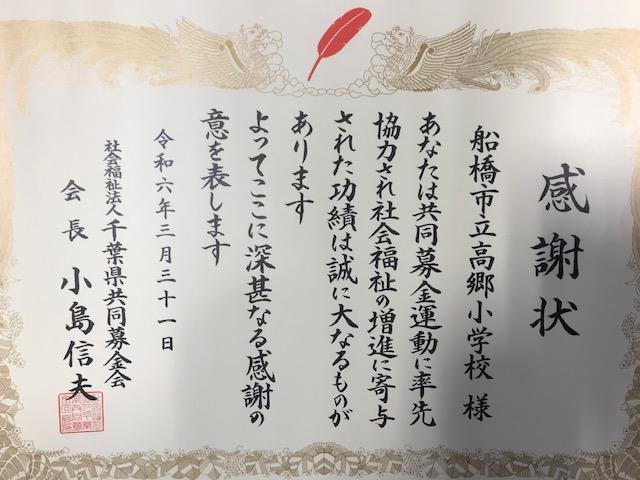 感謝状
船橋市立高郷小学校 様
あなたは共同募金運動に率先
協力され社会福祉の増進に寄与
された功績は誠に大なるものが
あります
よってここに深甚なる感謝の
意を表します
令和六年三月三十一日
社会福祉法人千葉県共同募金会
会長 小島信夫